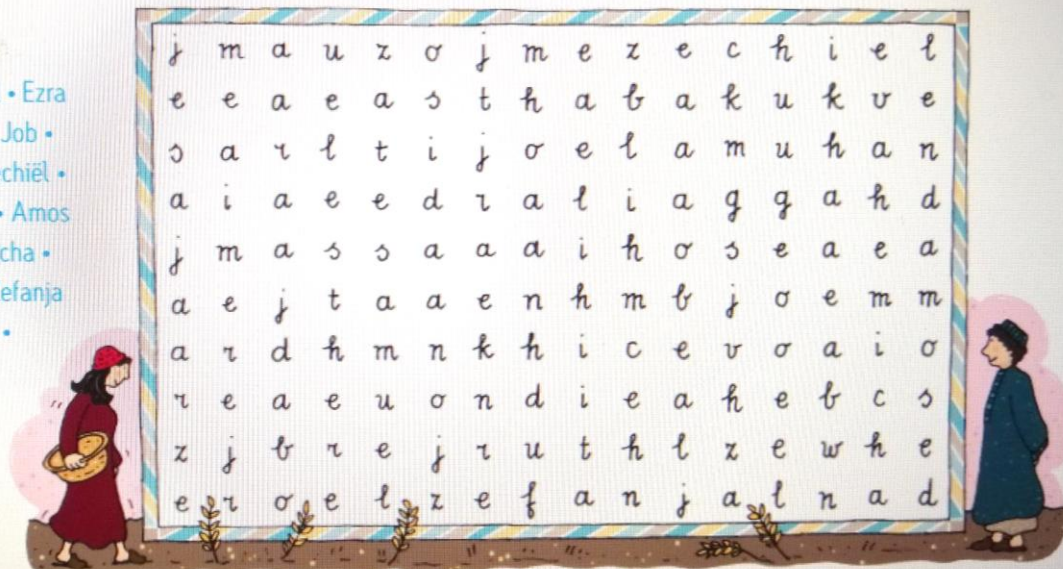 • Ezra
Job •
chiël •
• Amos
cha •
efanja
•
j m a u z o j m e z e c h i e l
e e a e a s t h a b a k u k v e
s a r l t i j o e l a m u h a n
a i a e e d r a l i a g g a h d
j m a s s a a a i h o s e a e a
a e j t a a e n h m b j o e m m
a r d h m n k h i c e v o a i o
r e a e u o n d i e a h e b c s
z j b r e j r u t h l z e w h e
e r o e l z e f a n j a l n a d